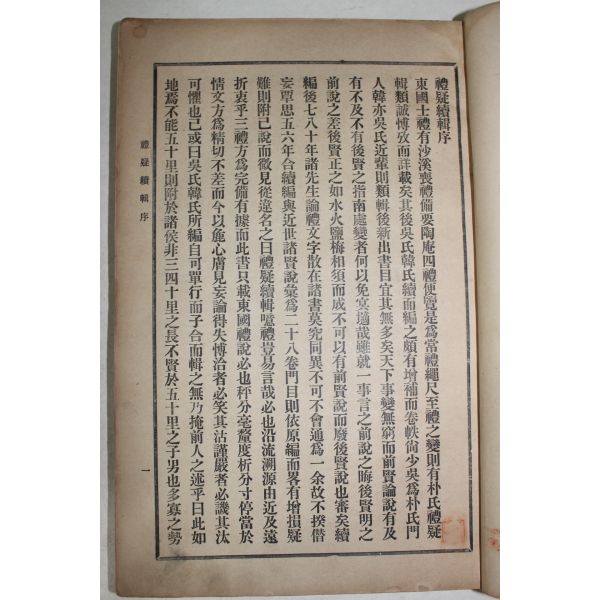 禮疑續輯序
東國士禮有沙溪喪禮備要陶庵四禮便覽是爲當禮繩尺至禮之變則有朴氏禮疑
輯類誠博攷而詳載矣其後吳氏韓氏續而編之頗有增補而卷帙尙少吳爲朴氏門
人韓亦吳氏近輩則類輯後新出書目宜其無多矣天下事變無窮而前賢論說有及
有不及不有後賢之指南處變者何以免冥擿哉雖就一事言之前說之晦後賢明之
前說之差後賢正之如水火鹽梅相須而成不可以有前賢說而廢後賢說也審矣續
編後七八十年諸先生論禮文字散在諸書莫究同異不可不會通爲一余故不揆僭
妄覃思五六年合續編與近世諸賢說彙爲二十八卷門目則依原編而畧有增損疑
難則附己說而微見從違名之曰禮疑續輯噫禮豈易言哉必也沿流溯源由近及遠
折衷乎三禮方爲完備有據而此書只載東國禮說必也秤分毫釐度析分寸停當於
情文方爲精切不差而今以麁心膚見妄論得失博洽者必笑其沽謹嚴者必譏其汰
可懼也已或曰吳氏韓氏所編自可單行而子合而輯之無乃掩前人之述乎曰此如
地焉不能五十里則附於諸侯非三四十里之長不賢於五十里之子男也多寡之勢
禮疑續輯序
一